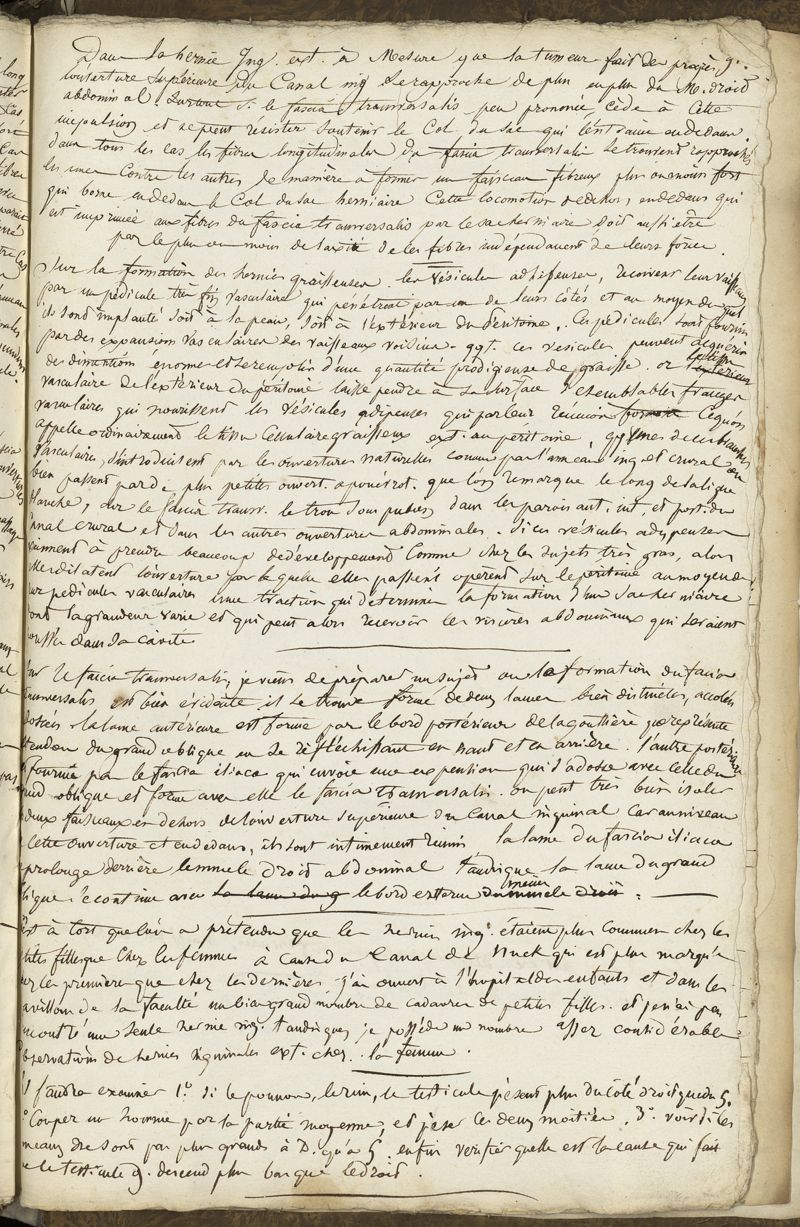 Dans la hernie Ing. ext. à Mesure que la tumeur fait de progrès
l'ouverture supérieure du Canal ing. se rapproche de plus en plus du M. droit
abdominal. Surtout si le fascia transversalis peu prononcé, cède à cette
impulsion et ne peut résister soutenir le Col du sac qui l'entraine en dedans
dans tous les cas les fibres longitudinales du fascia transversalis se trouvent rapprochés
les unes contre les autres de manière à former un faisceau fibreux plus ou moins fort
qui borne en dedans le Col du sac herniaire Cette locomotion de dehors, en dedans qui
est imprimée aux fibres du fascia transversalis par le sac herniaire doit aussi être
par le plus ou moins de laxité de les fibres indépendament de leurs force.
Sur la formation des hernies graisseuses. les vésicules adipeuses, recoivent leurs vaisseaux
par un pédicule très fin vasculaire qui pénètrent par un de leurs côtés et au moyen duquel
ils sont implanté soit à la peau, soit à l'extérieur du Péritoine. Ces pédicules sont fournis
par des expansions vasculaires des vaisseaux voisins. qqf. ces vésicules peuvent acquérir
des dimentions énorme et se remplir d'une quantité prodigieuse de graisse. or le tissu
vasculaire de l'extérieur du péritoine laisse pendre à sa surface d'semblables franges
vasculaires qui nourissent les vésicules adipeuses qui par leur réunion forment ce qu'on
appelle ordinairement le tissu Cellulaire graisseux ext. au péritoine, qq unes de ces branches
vasculaires, s'introduisent par les ouvertures naturelles comme par l'anneau ing. et crural ou
bien passent par de plus petites ouvert. aponévrot. que l'on remarque le long de la ligne
blanche, sur le fascia transv. le trou sous pubien dans les parois ant. int. et post. du
canal crural et dans les autres ouvertures abdominales. Si ces vésicules adipeuses
viennent à prendre beaucoup de développement comme chez les sujets très gras, alors
elles dilatent l'ouverture par laquelle elles passent opèrent sur le péritoine au moyen de
leurs pédicules vasculaires une traction qui détermine la formation d'un sac herniaire
dont la grandeur varie et qui peut alors recevoir les viscères abdominaux qui seraient
poussés dans sa cavité
Sur le fascia transversalis, je viens de préparer un sujet ou la formation du fascia
transversalis est bien évidente il se trouve formé de deux lames bien distinctes, accolées
adossées. la lame antérieure est formé par le bord postérieur de la gouttière que représente
tendon du grand oblique en se réfléchissant en haut et en arrière. l'autre postérieure
fournie par le fascia iliaca qui envoie une expension qui s'adosse avec celle du
grand oblique et forme avec elle le fascia transversalis. on peut très bien isoler
deux faisceaux en dehors de l'ouverture supérieure du Canal inguinal Car au niveau
cette ouverture et en dedans, ils sont intimement réunis la lame du fascia iliaca
prolonge derrière le muscle droit abdominal tandisque la lame du grand
oblique se continue avec la lame du g le bord externe du même muscle droit.
C'est à tort que l'on a prétendu que les hernies ing. étaient plus Commun chez les
petites filles que chez les femmes à cause du Canal de Nuck qui est plus marqué
chez les première que chez les dernières. j'ai ouvert à l'hopital des enfants et dans les
pavillons de la faculté un bien grand nombre de cadavres de petites filles. et je n'ai pas
rencontré une seule hernie ing. tandisque je possède un nombre assez considérable
observations de hernies inguinales ext. chez la femme.
Il faudra examiner 1º. Si le poumon, le rein, le testicule pèsent plus du côté droit que du G.
2º. Couper un homme par sa partie moyenne, et peser les deux moitiées. 3º. voir si les
vaisseaux dre sont pas plus grands à D. qu'à G. enfin vérifier quelle est la cause qui fait
que le testicule g. descend plus bas que le droit.